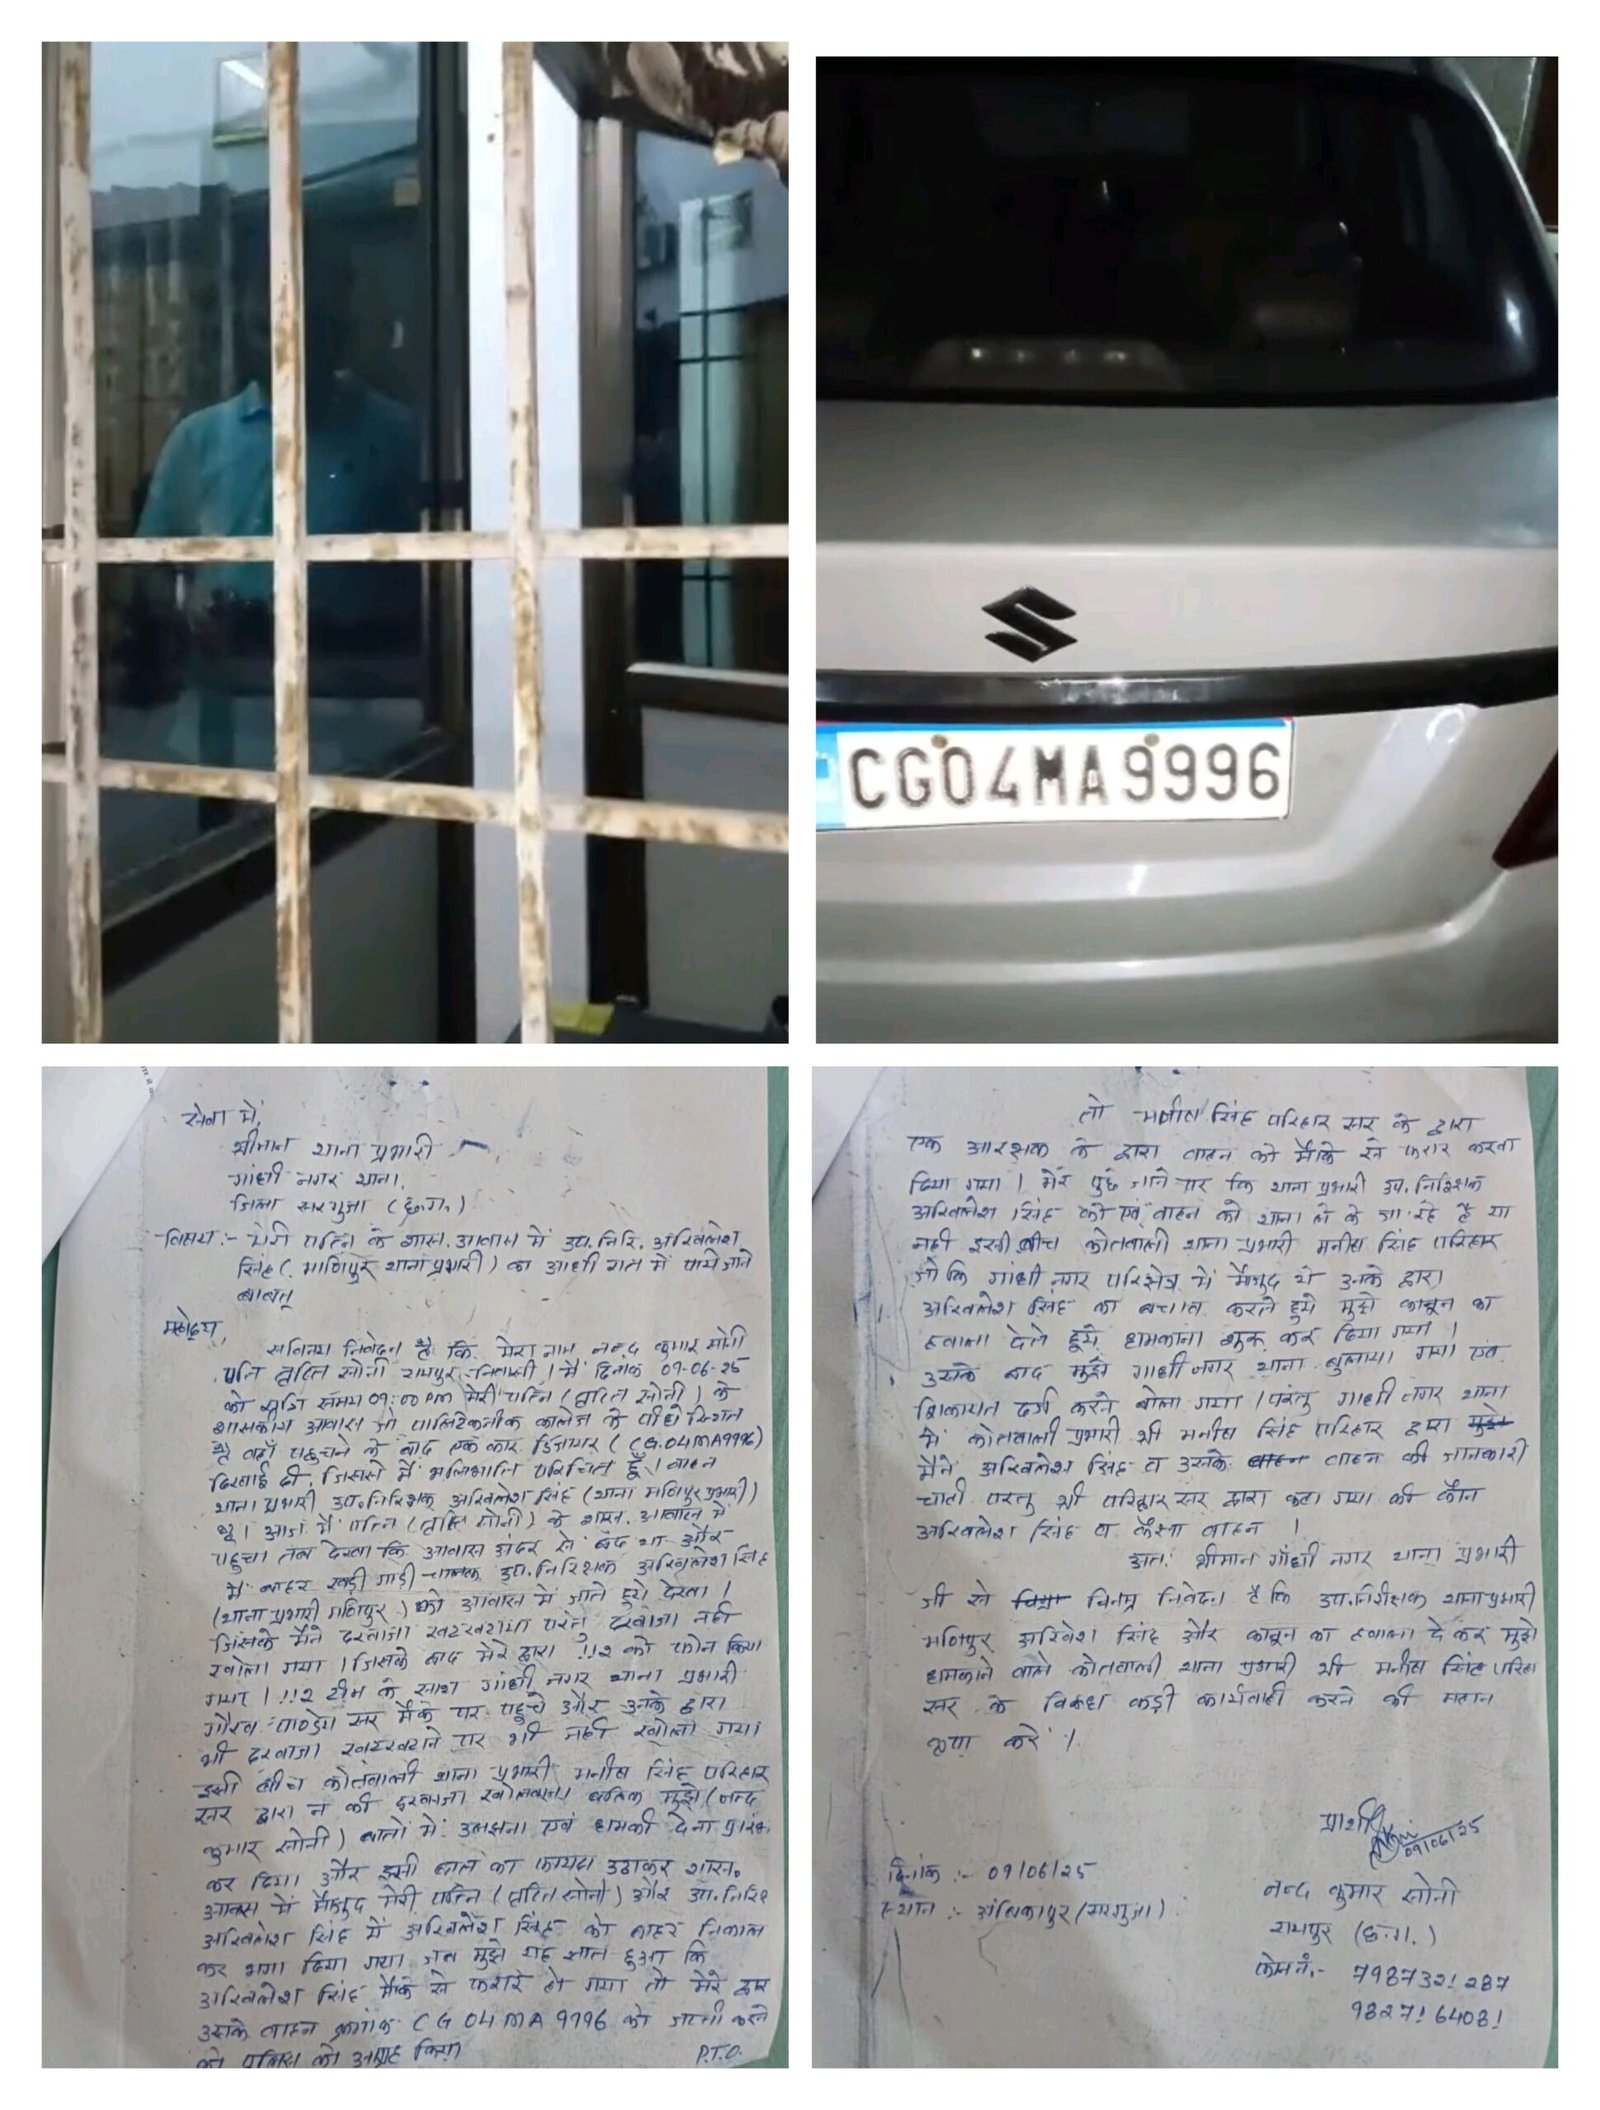 CG04MA9996
सेवा में,
श्रीमान थाना प्रभारी
गांधी नगर थाना,
जिला सरगुजा (छ.ग.)
विषय:- मेरी पत्नि के शास. आवास में उप. निरि. अखिलेश
सिंह (मणिपुर थाना प्रभारी) का आधी रात में पाये जाने
बाबत्
महोदय,
सविनय निवेदन है कि मेरा नाम नन्द कुमार सोनी
पति सोनी रायपुर निवासी। मैं दिनांक 09-06-25
को रात्रि समय 09:00 PM मेरी पत्नि ( सोनी) के
शासकीय आवास जो पालिटेकनीक कालेज के पीछे स्थित
है वहाँ पहुचने के बाद एक कार डिजायर (CG.04MA9996)
दिखाई दी, जिससे मैं भलिभाति परिचित हूँ। वाहन
थाना प्रभारी उप. निरिक्षक अखिलेश सिंह (थाना मणिपुर प्रभारी)
थे। आज मैं पत्नि ( सोनी) के शास. आवास में
पहुचा तब देखा कि आवास अंदर से बंद था और
में बाहर खड़ी गाड़ी चालक उप. निरिक्षक अखिलेश सिंह
(थाना प्रभारी मणिपुर) को आवास में जाते हुये देखा।
जिसके मैंने दरवाजा खटखटाया परंतु दरवाजा नही
खोला गया। जिसके बाद मेरे द्वारा 112 को फोन किया
गया। 112 टीम के साथ गांधी नगर थाना प्रभारी
गौरव पाण्डेय सर मौके पर पहुचे और उनके द्वारा
भी दरवाजा खटखटाने पर भी नही खोला गया।
इसी बीच कोतवाली थाना प्रभारी मनीष सिंह परिहार
सर द्वारा न की दरवाजा खोलवाना बल्कि मुझे (नन्द
कुमार सोनी) बातों में उलझना एवं धमकी देना प्रारंभ
कर दिया और इसी बात का फायदा उठाकर शास.
आवास में मौजूद मेरी पत्नि ( सोनी) और उप. निरि
अखिलेश सिंह में अखिलेश सिंह को बाहर निकाल
कर भगा दिया गया जब मुझे यह ज्ञात हुआ कि
अखिलेश सिंह मौके से फरार हो गया तो मेरे द्वारा
उसके वाहन क्रमांक CG 04 MA 9996 को जप्ती करने
को पुलिस को आग्रह किया
P.T.O.
तो मनीष सिंह परिहार सर के द्वारा
एक आरक्षक के द्वारा वाहन को मौके से फरार करवा
दिया गया। मेरे पुछे जाने पर कि थाना प्रभारी उप. निरिक्षक
अखिलेश सिंह को एवं वाहन को थाना ले के जा रहे है या
नही इसी बीच कोतवाली थाना प्रभारी मनीष सिंह परिहार
जो कि गांधी नगर परिक्षेत्र में मौजूद थे उनके द्वारा
अखिलेश सिंह का बचाव करते हुये मुझे कानून का
हवाला देते हुये धमकाना शुरू कर दिया गया।
उसके बाद मुझे गांधी नगर थाना बुलाया गया एवं
शिकायत दर्ज करने बोला गया। परंतु गांधी नगर थाना
में कोतवाली प्रभारी श्री मनीष सिंह परिहार द्वारा मुझे
मैंने अखिलेश सिंह व उसके वाहन वाहन की जानकारी
चाही परंतु श्री परिहार सर द्वारा कहा गया की कौन
अखिलेश सिंह व कैसा वाहन।
अतः श्रीमान गाँधी नगर थाना प्रभारी
जी से विनम्र निवेदन है कि उप. निरीक्षक थाना प्रभारी
मणिपुर अखिलेश सिंह और कानून का हवाला दे कर मुझे
धमकाने वाले कोतवाली थाना प्रभारी श्री मनीष सिंह परिहार
सर के विरूध कड़ी कार्यवाही करने की महान
कृपा करें।
प्रार्थी
09/06/25
दिनांक:- 09/06/25
स्थान:- अंबिकापुर (सरगुजा)
नन्द कुमार सोनी
रायपुर (छ.ग.)
फोन नं.- 7987321287
9827164081